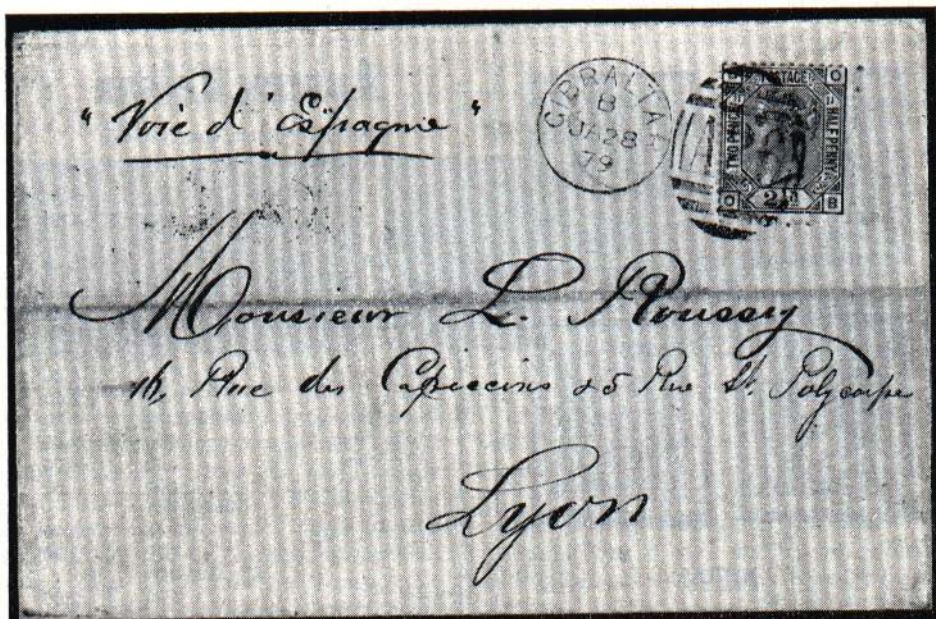 "Voie d'Espagne"
GIBRALTAR
B
JA 28
79
B POSTAGE O
TWO PENCE
HALFPENNY
O 2½d B
Monsieur L. Roussy
16, Rue des Capucins & 5 Rue St. Polycarpe
Lyon